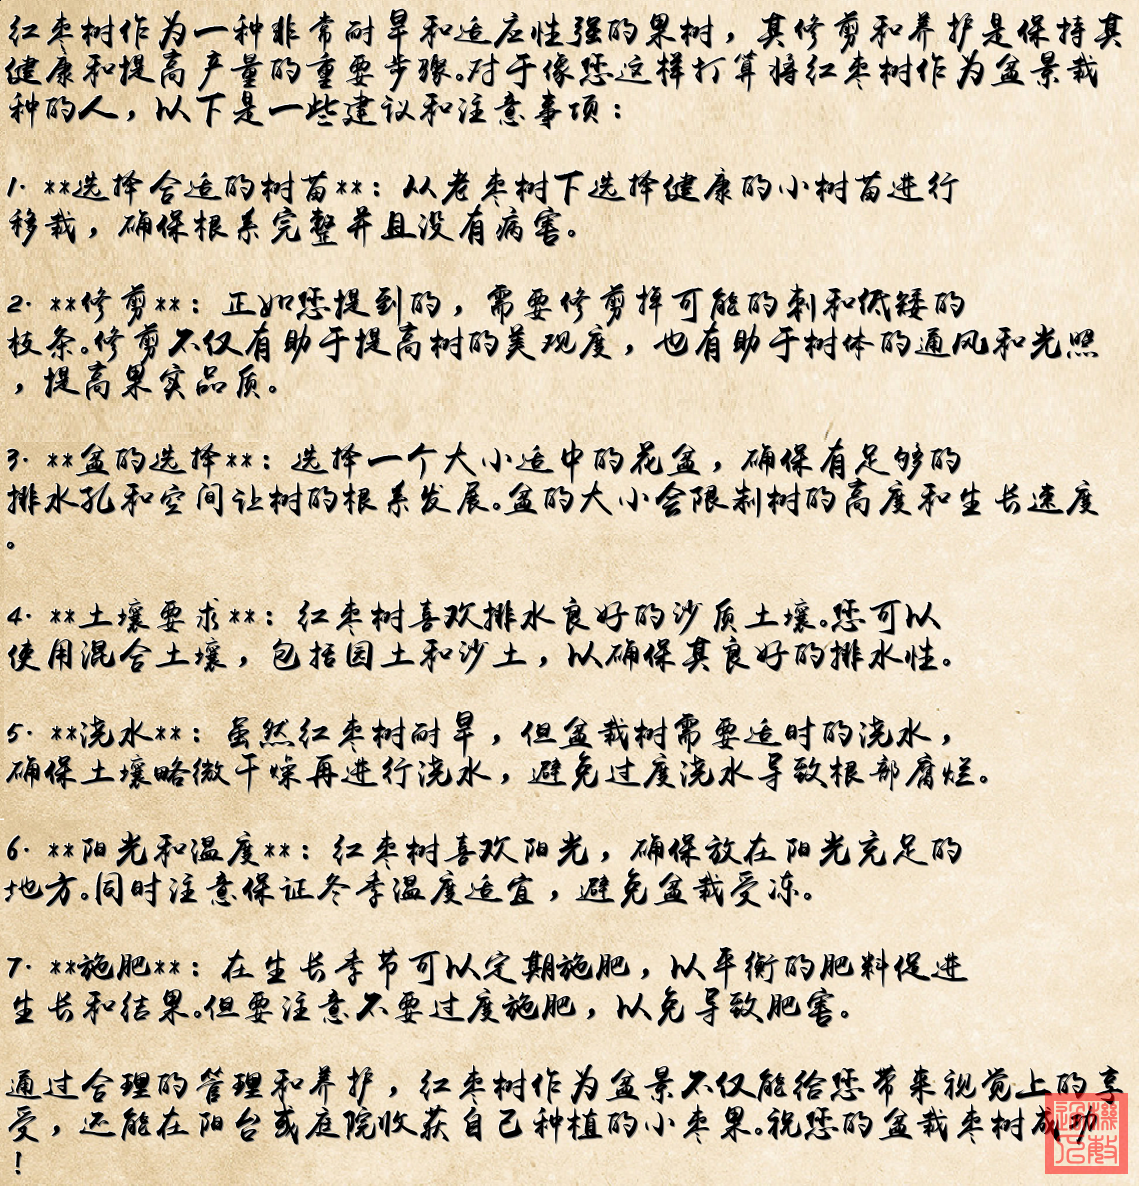 红枣树作为一种非常耐旱和适应性强的果树，其修剪和养护是保持其
健康和提高产量的重要步骤。对于像您这样打算将红枣树作为盆景栽
种的人，以下是一些建议和注意事项：
1. **选择合适的树苗**：从老枣树下选择健康的小树苗进行
移栽，确保根系完整并且没有病害。
2. **修剪**：正如您提到的，需要修剪掉可能的刺和低矮的
枝条。修剪不仅有助于提高树的美观度，也有助于树体的通风和光照
，提高果实品质。
3. **盆的选择**：选择一个大小适中的花盆，确保有足够的
排水孔和空间让树的根系发展。盆的大小会限制树的高度和生长速度
。
4. **土壤要求**：红枣树喜欢排水良好的沙质土壤。您可以
使用混合土壤，包括园土和沙土，以确保其良好的排水性。
5. **浇水**：虽然红枣树耐旱，但盆栽树需要适时的浇水，
确保土壤略微干燥再进行浇水，避免过度浇水导致根部腐烂。
6. **阳光和温度**：红枣树喜欢阳光，确保放在阳光充足的
地方。同时注意保证冬季温度适宜，避免盆栽受冻。
7. **施肥**：在生长季节可以定期施肥，以平衡的肥料促进
生长和结果。但要注意不要过度施肥，以免导致肥害。
通过合理的管理和养护，红枣树作为盆景不仅能给您带来视觉上的享
受，还能在阳台或庭院收获自己种植的小枣果。祝您的盆栽枣树成功
！